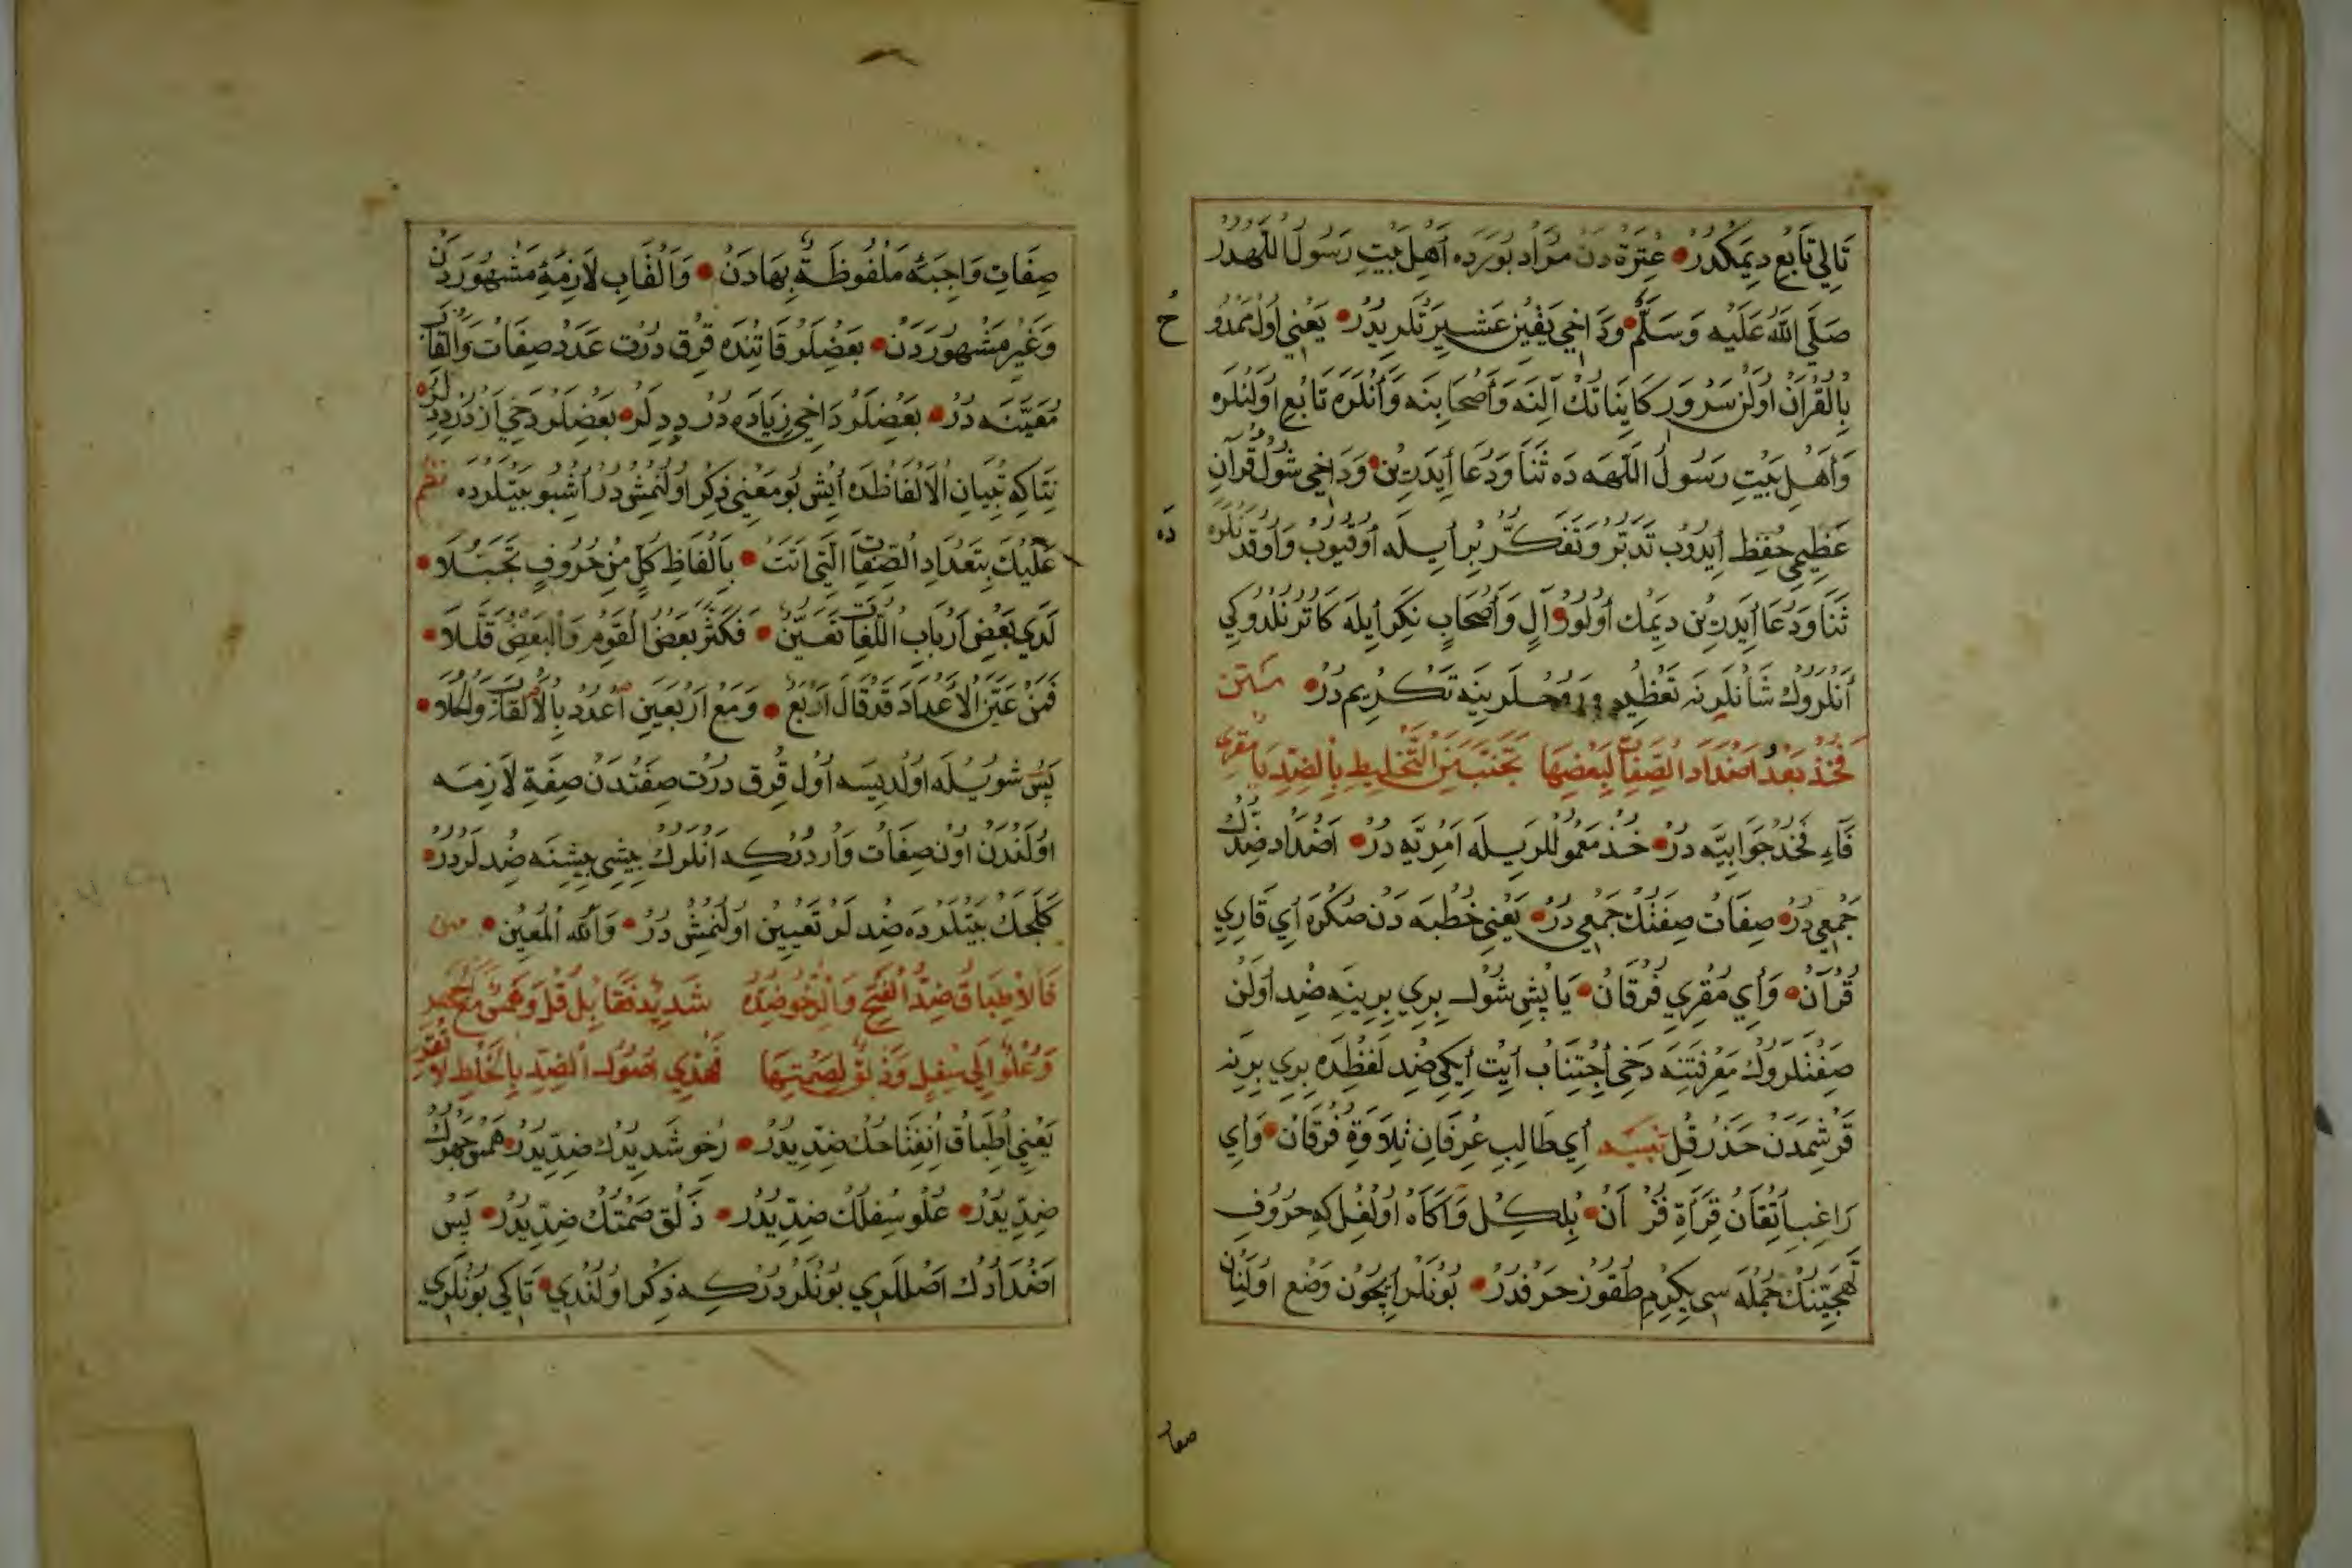 تَالِي تَابِع دِيمَكْدُرْ عِتْرَة دَنْ مُرَاد بُورَدَه أَهْلِ بَيْتِ رَسُولُ اللّٰهدُرُ
صَلَّي اللّٰهُ عَلَيْه وَسَلَّمْ وَدَاخِي يَقِين عَشِيرَتْلَرِيدُرْ يَعْنِي اُول
بِالْقُرْآنْ اُولَنْ سَرْوَرِ كَايِنَاتكْ آلِنَه وَأَصْحَابِنَه وَأَنْلَرَه تَابِع اُولَنْلَرَه
وَأَهْلِ بَيْتِ رَسُولُ اللّٰهَه دَه ثَنَا وَدُعَا أَيدَرِين وَدَاخِي شُول قُرْآنِ
عَظِيمِي حِفْظ اِيدُوبْ تَدَبُّرْ وَتَفَكُّرْ بِرْ اَيلَه أُوقِيُوبْ وَأُوقُدَنْلَرَه
ثَنَا وَدُعَا أَيدَرِين دِيمَك أُولُورْ آلِ وَأَصْحَابِ تَكِرَ أَيلَه كَاتُرْنَلْدُوكِي
أَنْلَرُوكْ شَانْلَرِنَه تَعْظِيم وَرُوحْلَرِينَه تَكْرِيم دُرْ متن
فَخُذْ بَعْدُ اَضْدَادَ الصِّفَاتِ لِبَعْضِهَا تَجَنَّبْ مِنَ التَّخْلِيطِ بِالضِّدِ يَا مُقْرِي
فَآءِ فَخُذْ جَوَابِيَّه دُرْ خُذْ مَعْمُولْلَرِيلَه اَمْرِيَّه دُرْ اَضْدَاد ضِدُّكْ
جَمْعِي دُرْ صِفَاتْ صِفَتُكْ جَمْعِي دُرْ يَعْنِي خُطْبَه دَنْ صُكْرَه أَي قَارِي
قُرْآنْ وَأَي مُقْرِي فُرْقَانْ يَاپِشِي شُولْ بِرِي بِرِينَه ضِد اُولَنْ
صِفَتْلَرُوكْ مَعْرِفَتِنَه دَخِي أَجْتِنَابْ أَيت أَيكِي ضِد لَفْظِدَه بِرِي بِرِينَه
قَرِشْمَدَنْ حَذَرْ قِل تنبيه أَي طَالِبِ عِرْفَانِ تِلَاوَةِ فُرْقَانْ وَأَي
رَاغِبِ اَتِقَانِ قِرَأَةِ قُرْ اَنْ بِلْكِلْ وَآكَاه اُولْغِل كِه حُرُوفِ
تَهَجِّينُكْ جُمْلَه سِي يِكِرْمِ طُقُوزْ حَرْفدُرْ بُونْلَرْ اِيچُونْ وَضْع اُولِنَانْ
صفا
صِفَاتِ وَاجِبَهٔ مَلْفُوظَةٌ بِهَادَنْ وَاَلْقَابِ لَازِمَهٔ مَشْهُورَدَنْ
وَغَيْرِ مَشْهُورَدَنْ بَعْضِلَرْ قَاتِنْدَه قِرْق دُرْت عَدَدْ صِفَاتْ وَاَلْقَابِ
مُعَيَّنَه دُرْ بَعْضِلَرْ دَاخِي زِيَادَه دُرْ دِدِلَرْ بَعْضِلَرْ دَخِي اَزْدُرْ دِدِلَرْ
نِتَاكِه تِبْيَانِ الْاَلْفَاظدَه أَيشْ بُو مَعْنِي ذِكْر اُولُنْمِشْدُرْ اُشْبُو بَيْتلَرْدَه نظم
عَلَيْكَ بِتَعْدَادِ الصِّفَاتِ الَّتِي اَتَتْ بِاَلْفَاظِ كُلٍّ مِنْ حُرُوفٍ
لَدَي بَعْضِ اَرْبَابِ اللُّغَاتِ تَعَيَّنْ فَكَثَّرَ بَعْضُ الْقَوْمِ وَالْبَعْضُ قَلَّلَا
فَمَنْ عَيَّنَ الْاَعْدَادَ قَدْ قَالَ اَرْبَعٌ وَمَعْ اَرْبَعِينَ اُعْدُدْ بِالْاَلْقَابِ
پَسْ شُويلَه اُولْديسَه اُول قِرْق دُرْت صِفَتْدَنْ صِفَةِ لَازِمَه
اُولَنْدَنْ اُونْ صِفَاتْ وَارْدُرْكِه اَنْلَرُوكْ بِيشِي بِيشِنَه ضِدلَرْدُرْ
كَلَجَكْ بَيْتلَرْدَه ضِدلَرْ تَعْيِين اُولُنْمِشْدُرْ وَاللّٰهُ الْمُعِين متن
فَالْاِطْبَاقُ ضِدُّ الْفَتْحِ وَالرِّخْوُ ضِدُّهُ شَدِيدٌ
وَعُلْوٌ اِلَي سُفْلٍ وَذَلْقٌ لِصَمْتِهَا فَهٰذِي اُصُولُ الضِّدِّ بِالْخَلْطِ لَا تُقْرِ
يَعْنِي اُطْبَاقْ اِنْفِتَاحُكْ ضِدّيدُرْ رِخْو شَدِيدُكْ ضِدّيدُرْ هَمْس جَهْرُكْ
ضِدّيدُرْ عُلْو سُفْلُكْ ضِدّيدُرْ ذَلْق صَمْتُكْ ضِدّيدُرْ پَسْ
اَضْدَادُكْ اَصْللَرِي بُونْلَرْدُرْكِه ذِكْر اُولُنْدِي تَاكِي بُونْلَرِي